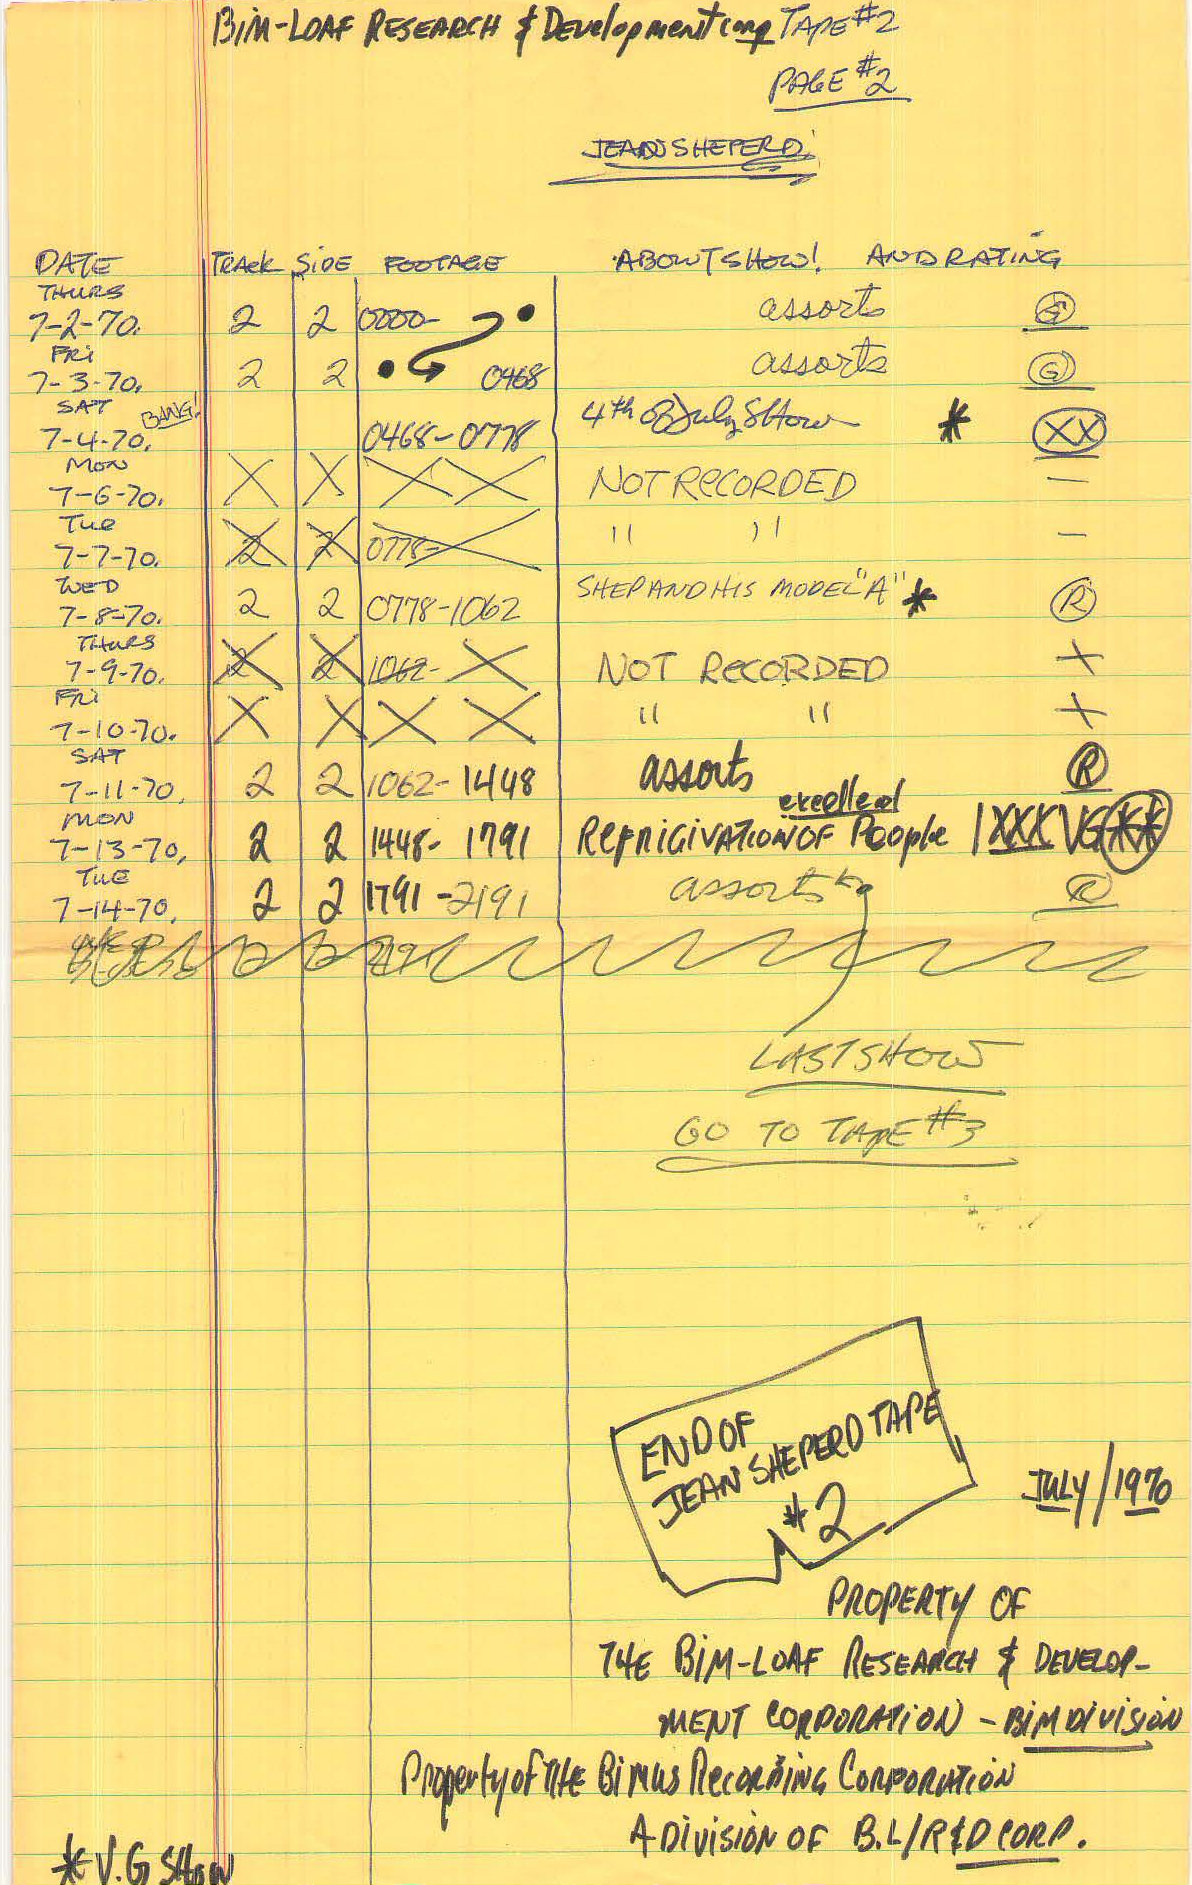 BiM-LOAF RESEARCH & Development Corp TAPE #2
PAGE #2
JEAN SHEPERD
DATE TRACK SIDE FOOTAGE ABOUT SHOW! AND RATING
THURS
7-2-70. 2 2 0000- assorts G
FRi
7-3-70. 2 2 0468 assorts G
SAT BANG!
7-4-70. 0468-0778 4th of July Show * XX
MON
7-6-70. X X X X NOT RECORDED —
Tue
7-7-70. 2 2 0778- " " —
WED
7-8-70. 2 2 0778-1062 SHEP AND HIS MODEL "A" * R
THURS
7-9-70. 2 2 1062- X NOT RECORDED X
FRi
7-10-70. X X X X " " X
SAT
7-11-70. 2 2 1062-1448 assorts R
MON excelled
7-13-70. 2 2 1448-1791 REFRIGIVATION OF People XXX VG **
TUE
7-14-70. 2 2 1791-2191 assorts R
2 2 2191
LAST SHOW
GO TO TAPE #3
END OF
JEAN SHEPERD TAPE
#2
JULY/1970
PROPERTY OF
THE BiM-LOAF RESEARCH & DEVELOP-
MENT CORPORATiON - BiM DiViSiON
Property of THE BiMUS RECORDiNG CORPORATiON
A DiViSiON OF B.L/R&D CORP.
* V.G SHOW